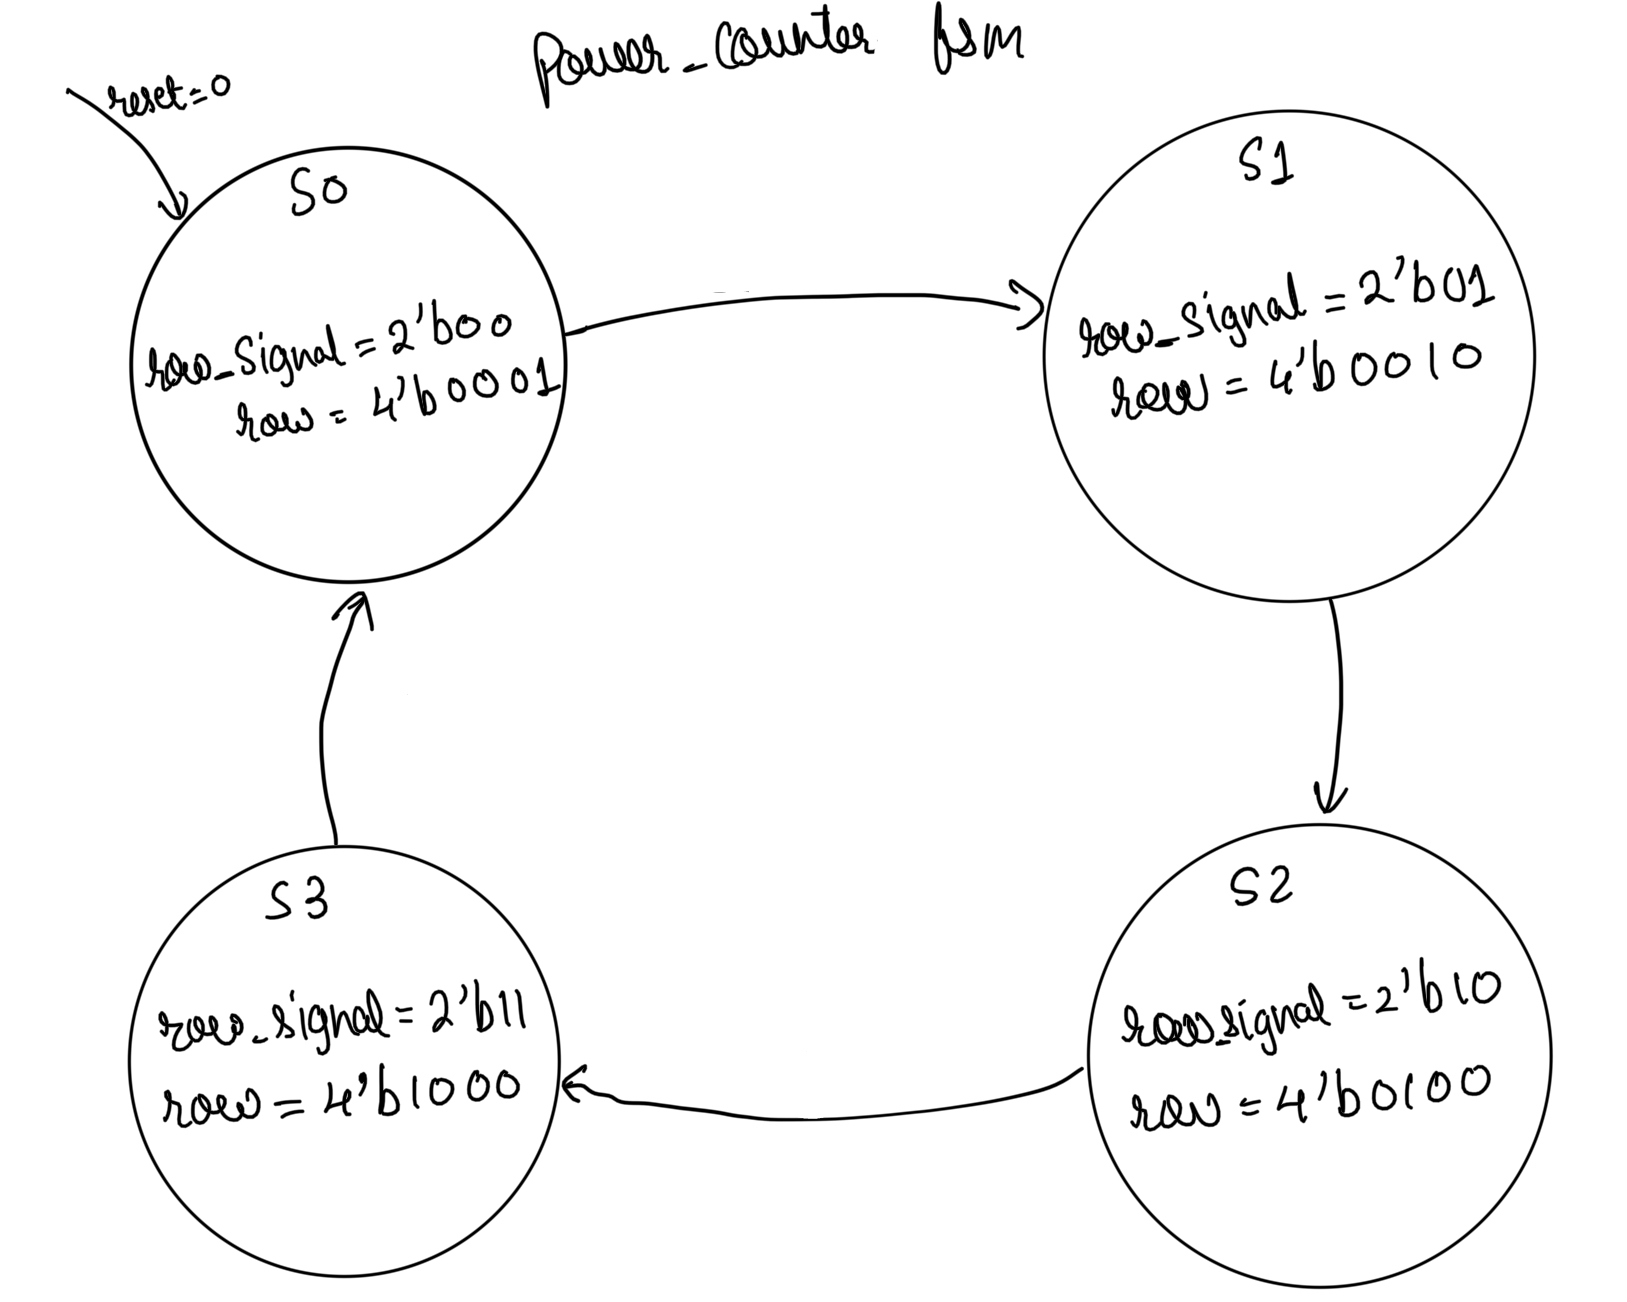 Power_Counter fsm
reset=0
S0
row_Signal = 2'b00
row = 4'b0001
S1
row_signal = 2'b01
row = 4'b0010
S3
row_signal = 2'b11
row = 4'b1000
S2
row_signal = 2'b10
row = 4'b0100